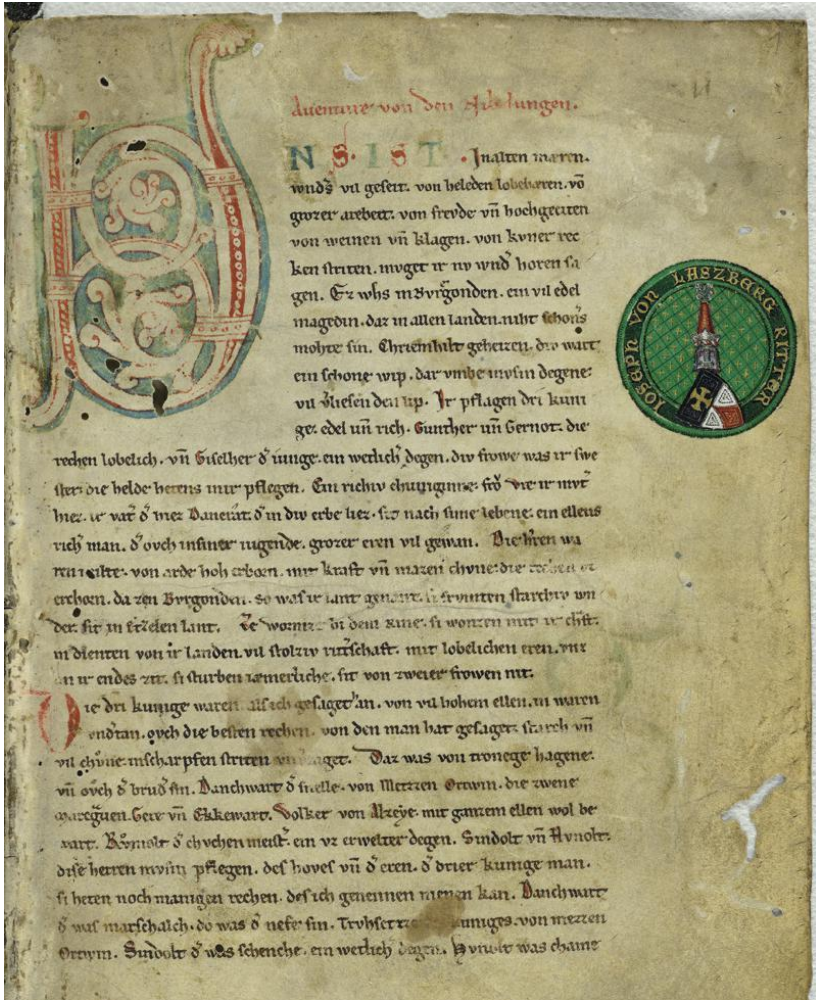 Auenture von den Nibelungen.
VNS. IST. In alten mæren.
wnds vil geseit. von heleden lobebæren. võ
grozer arebeit. von frevde vñ hochgeciten
von weinen vñ klagen. von kvner rec
ken striten. mvget ir nv wnd horen sa
gen. Ez whs in Bvrgonden. ein vil edel
magedin. daz in allen landen. niht schons
mohte sin. Chriemhilt geheizen. div wart
ein schone wip. dar vmbe mvsin degene
vil vliesen den lip. Ir pflagen dri kuni
ge. edel uñ rich. Gunther uñ Gernot. die
rechen lobelich. vñ Giselher d iunge. ein wetlich degen. div frowe was ir swe
ster. die helde hetens inir pflegen. Ein richiv chuniginne. frō Vte ir mvt
hiez. ir vat d hiez Dancrat. d in div erbe liez. sit nach sime lebene. ein ellens
rich man. d ovch in siner iugende. grozer eren vil gewan. Die hren wa
ren milte. von arde hoh erborn. mit kraft vñ mazen chvne. die rechen vz
erchorn. da zen Bvrgonden. so was ir lant genant. si frvmten starchiv wn
der. sit in Etzelen lant. Ze Wormz bi dem Rine. si wonten mit ir chft.
in dienten von ir landen. vil stolziv ritschaft. mit lobelichen eren. vnz
an ir endes zit. si sturben iæmerliche. sit von zweier frowen nit.
Die dri kunige waren. als ich gesaget han. von vil hohem ellen. in waren
vndtan. ovch die besten rechen. von den man hat gesaget. starch vñ
vil chvne. in scharpfen striten vnverzaget. Daz was von tronege hagene.
vñ ovch d brud sin. Danchwart d snelle. von Metzzen Ortwin. die zwene
marcgven. Gere vñ Ekkewart. Volker von Alzeye. mit ganzem ellen wol be
wart. Rvmolt d chvchen meist. ein vz erwelter degen. Sindolt vñ Hvnolt.
dise herren mvsin pflegen. des hoves vñ d eren. d drier kunige man.
si heten noch manigen rechen. des ich genennen nienen kan. Danchwart
d was marschalch. do was d nefe sin. Trvhsetze des kuniges. von mezzen
Ortwin. Sindolt d was schenche. ein wetlich degen. Hvnolt was chame
IOSEPH VON LASZBERG RITTER